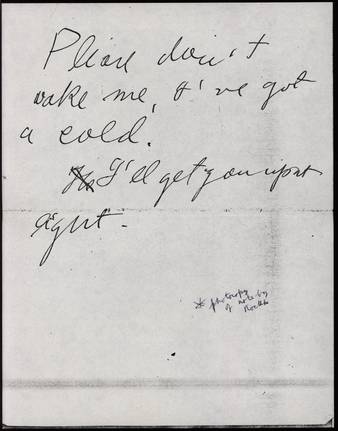 Please don't
wake me, I've got
a cold.
I'll get you up at
eight.
* photocopy
of note by